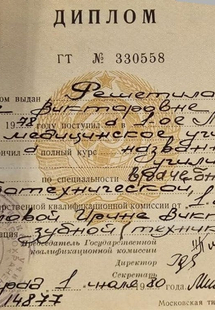 ДИПЛОМ
ГТ № 330558
ом выдан Решетила
е Викторовне
19 78 году поступил а 1-ое Л
медицинское учи
нчил а полный курс назван
учили
по специальности врачебн
отехнической,
дарственной квалификационной комиссии от 1.
овой Ирине Вик
ция зубной (техник
Председатель Государственной
квалификационной комиссии
Директор
Секретарь
1 июле 80
14877
Московская ти